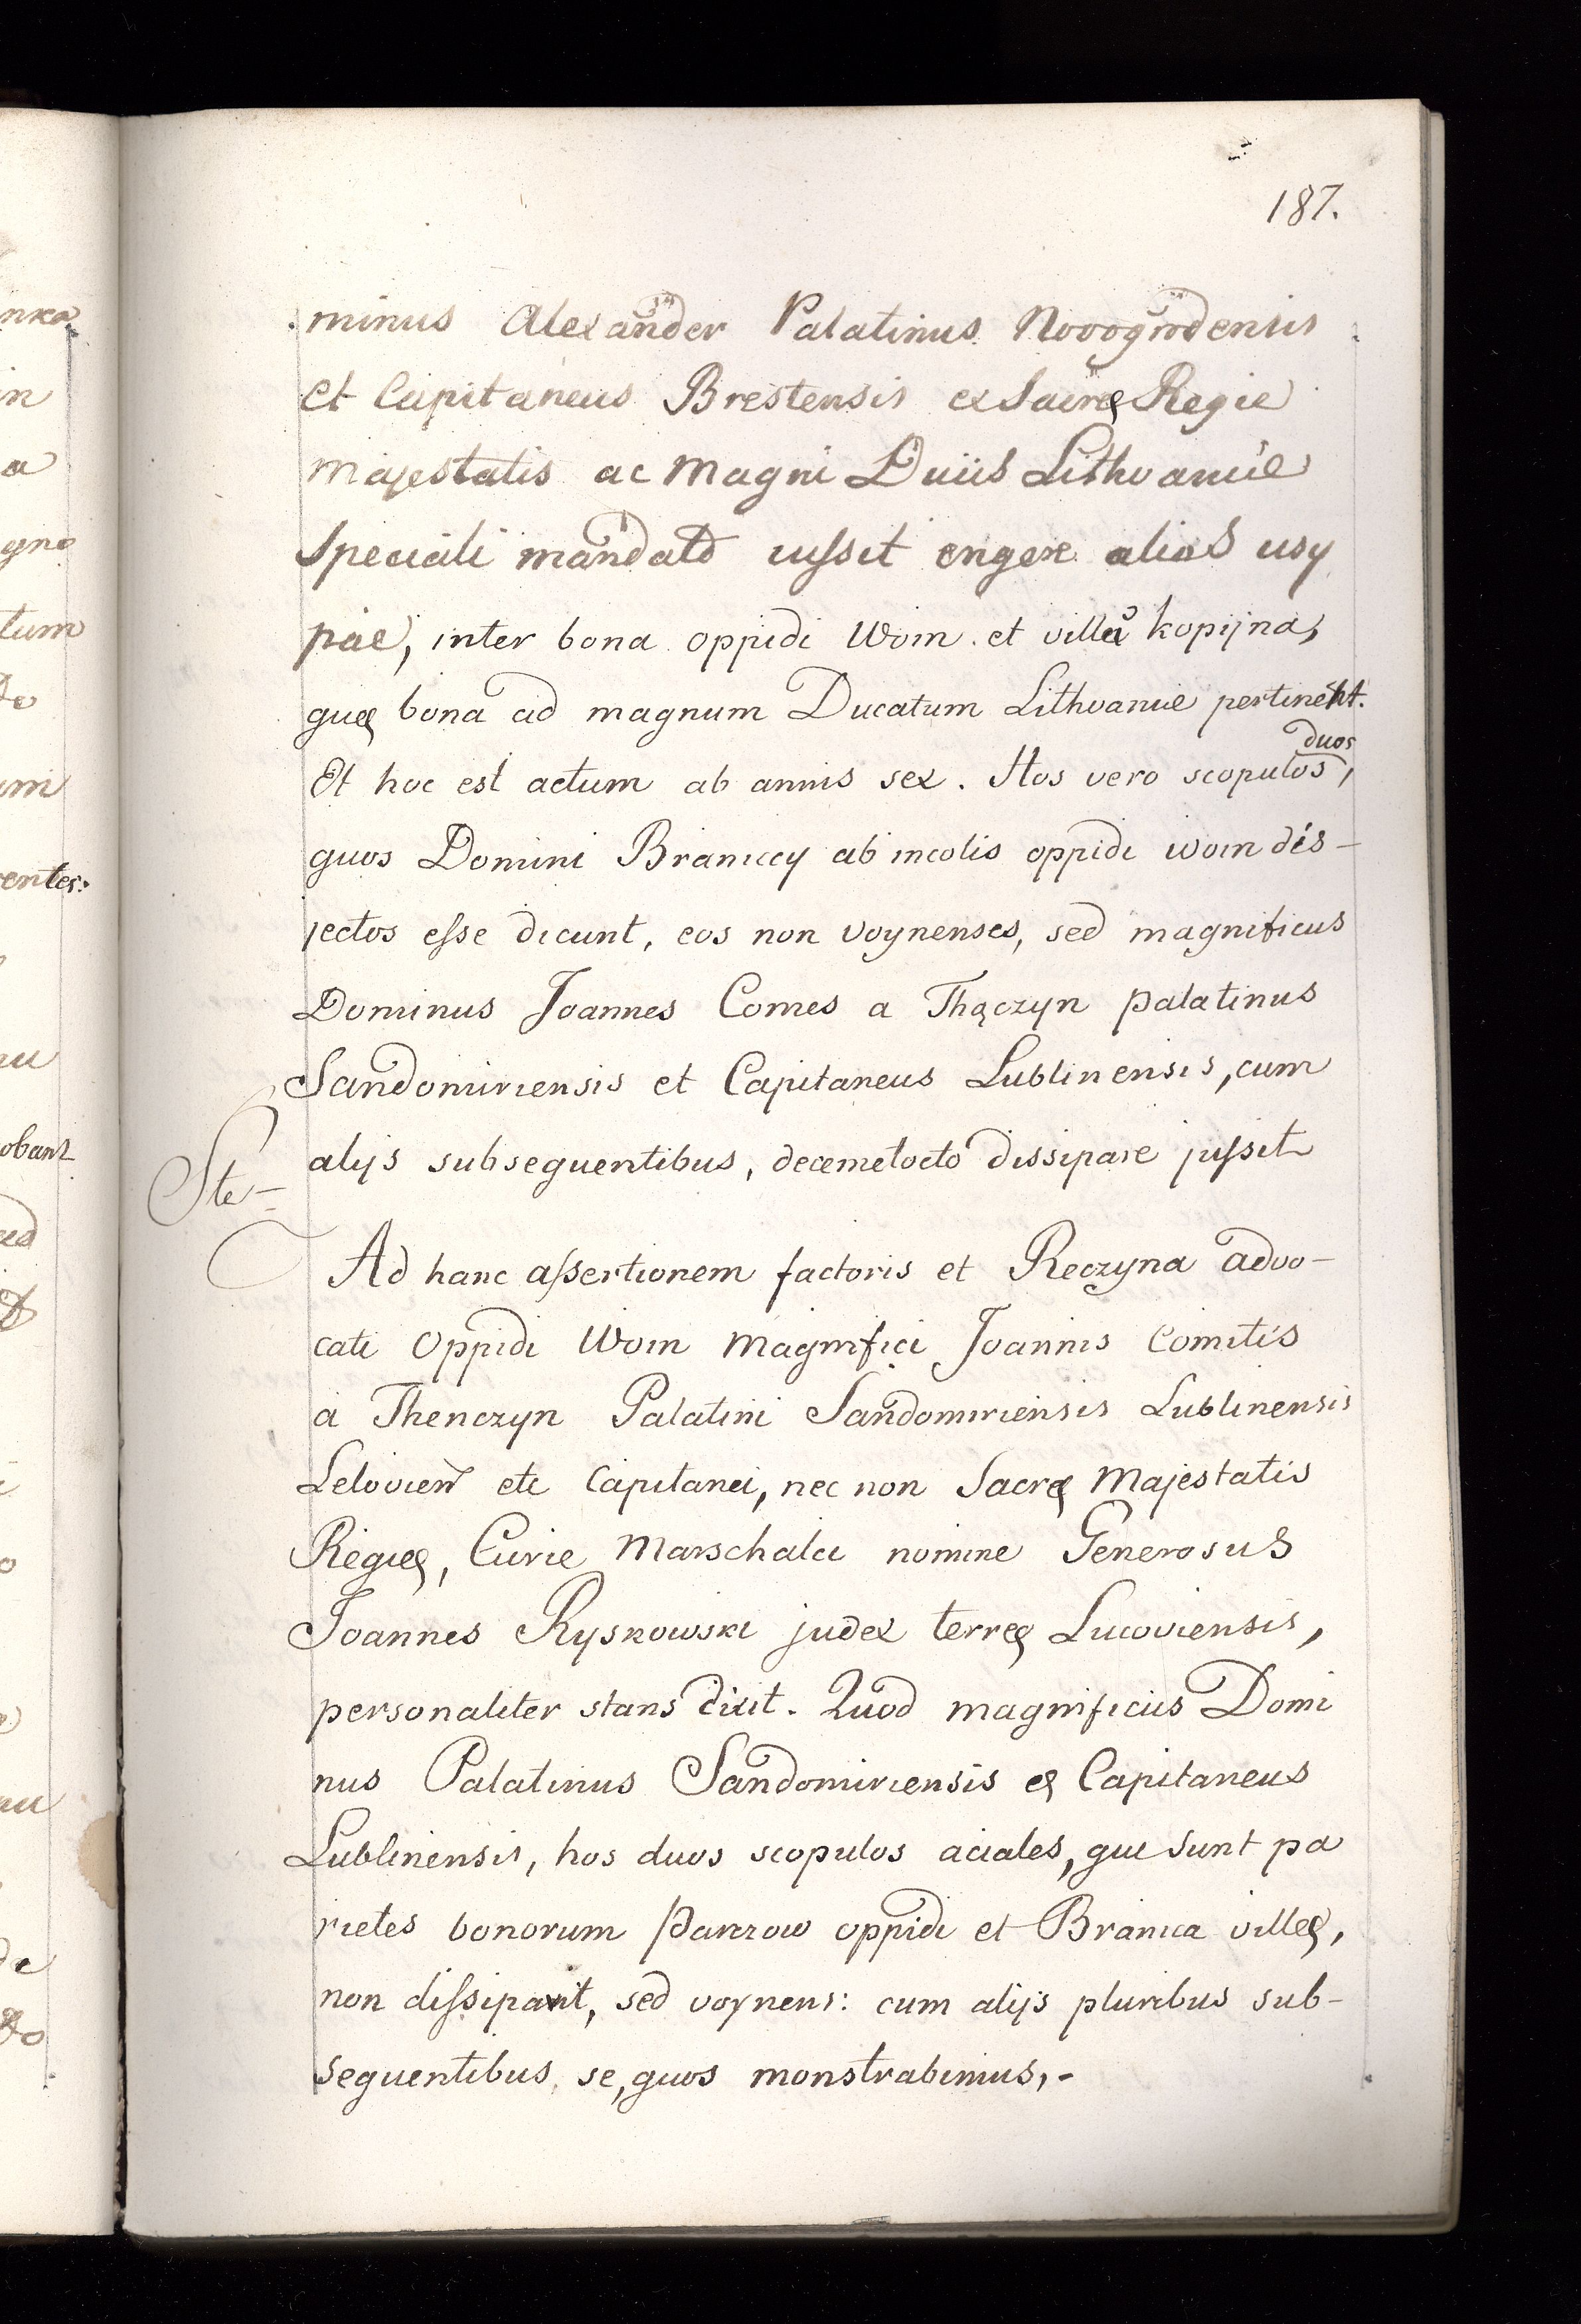 187.
minus Alexander Palatinus Novogrodensis
et Capitaneus Brestensis ex Sacrę Regie
Majestatis ac Magni Ducis Lithvanie
speciali mandato iussit erigere alias usy
pac, inter bona oppidi Woin et villā kopijna,
quę bona ad magnum Ducatum Lithvanie pertinent.
Et hoc est actum ab annis sex. Hos vero scopulos duos,
quos Domini Braniccy ab incolis oppidi woin dis-
jectos esse dicunt, eos non voynenses, sed magnificus
Dominus Joannes Comes a Thęczyn palatinus
Sandomiriensis et Capitaneus Lublinensis, cum
alijs subsequentibus, decemetocto dissipare jussit
Ste-
Ad hanc assertionem factoris et Reczyna advo-
cati oppidi Woin Magnifici Joannis Comitis
a Thenczyn Palatini Sandomiriensis Lublinensis
Lelovien etc Capitanei, nec non Sacrę Majestatis
Regię, Curie Marschalci nomine Generosus
Joannes Ryskowski judex terrę Lucoviensis,
personaliter stans dixit. Quod magnificus Domi
nus Palatinus Sandomiriensis et Capitaneus
Lublinensis, hos duos scopulos aciales, qui sunt pa
rietes bonorum Parczow oppidi et Branica villę,
non dissipavit, sed voynens: cum alijs pluribus sub-
sequentibus, se, quos monstrabimus,-
nka
in
a
gno
tum
entes:
obant